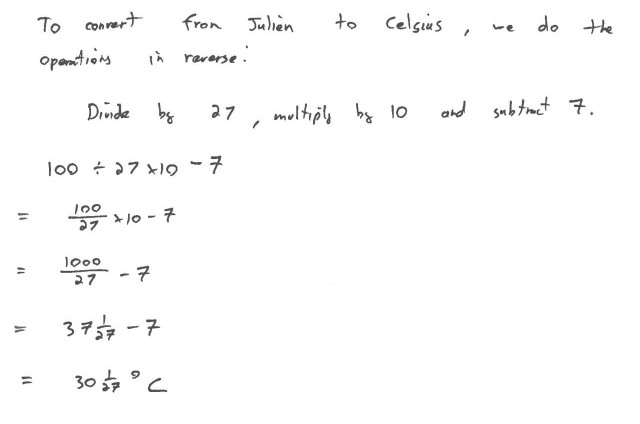 To convert from Julien to Celsius, we do the
operations in reverse:
Divide by 27, multiply by 10 and subtract 7.
100 ÷ 27 × 10 - 7
= 100/27 × 10 - 7
= 1000/27 - 7
= 37 1/27 - 7
= 30 1/27 °C